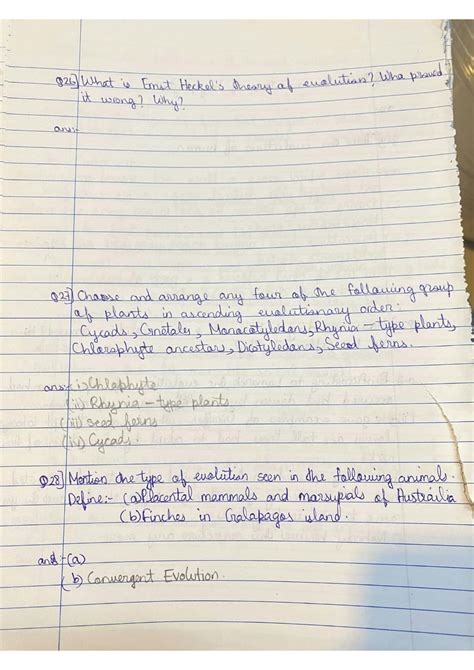 Q26] What is Ernst Heckel's theory of evolution? Who proved
it wrong? Why?
ans:-
Q27] Choose and arrange any four of the following group
of plants in ascending evolutionary order.
Cycads, Gnetales, Monocotyledons, Rhynia-type plants,
Chlorophyte ancestors, Dicotyledons, Seed ferns.
ans:- i) Chlophyte
(ii) Rhynia - type plants
(iii) seed ferns
(iv) Cycads.
Q28] Mention the type of evolution seen in the following animal.
Define:- (a) Placental mammals and marsupial of Austrailia
(b) Finches in Galapagos island.
ans :- (a)
(b) Convergent Evolution.